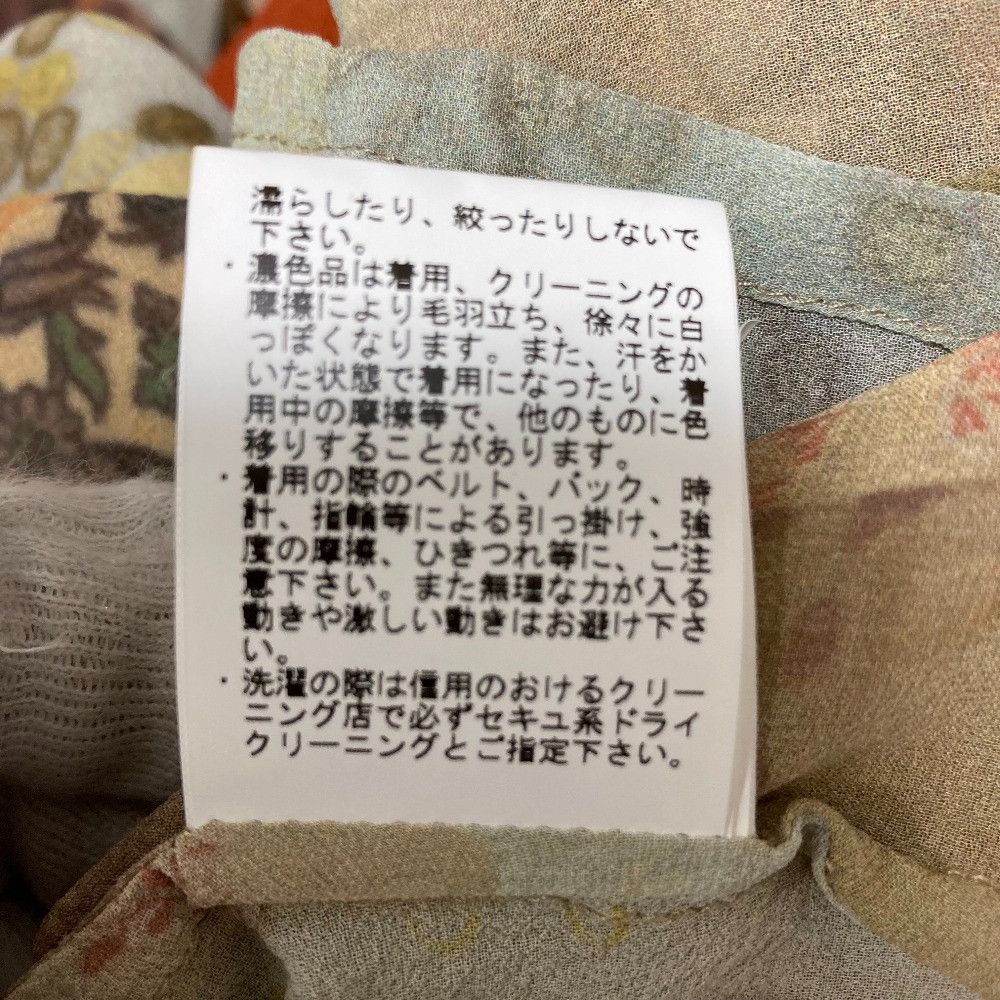 濡らしたり、絞ったりしないで
下さい。
・濃色品は着用、クリーニングの
摩擦により毛羽立ち、徐々に白
っぽくなります。また、汗をか
いた状態で着用になったり、着
用中の摩擦等で、他のものに色
移りすることがあります。
・着用の際のベルト、バック、時
計、指輪等による引っ掛け、強
度の摩擦、ひきつれ等に、ご注
意下さい。また無理な力が入る
動きや激しい動きはお避け下さ
い。
・洗濯の際は信用のおけるクリー
ニング店で必ずセキユ系ドライ
クリーニングとご指定下さい。